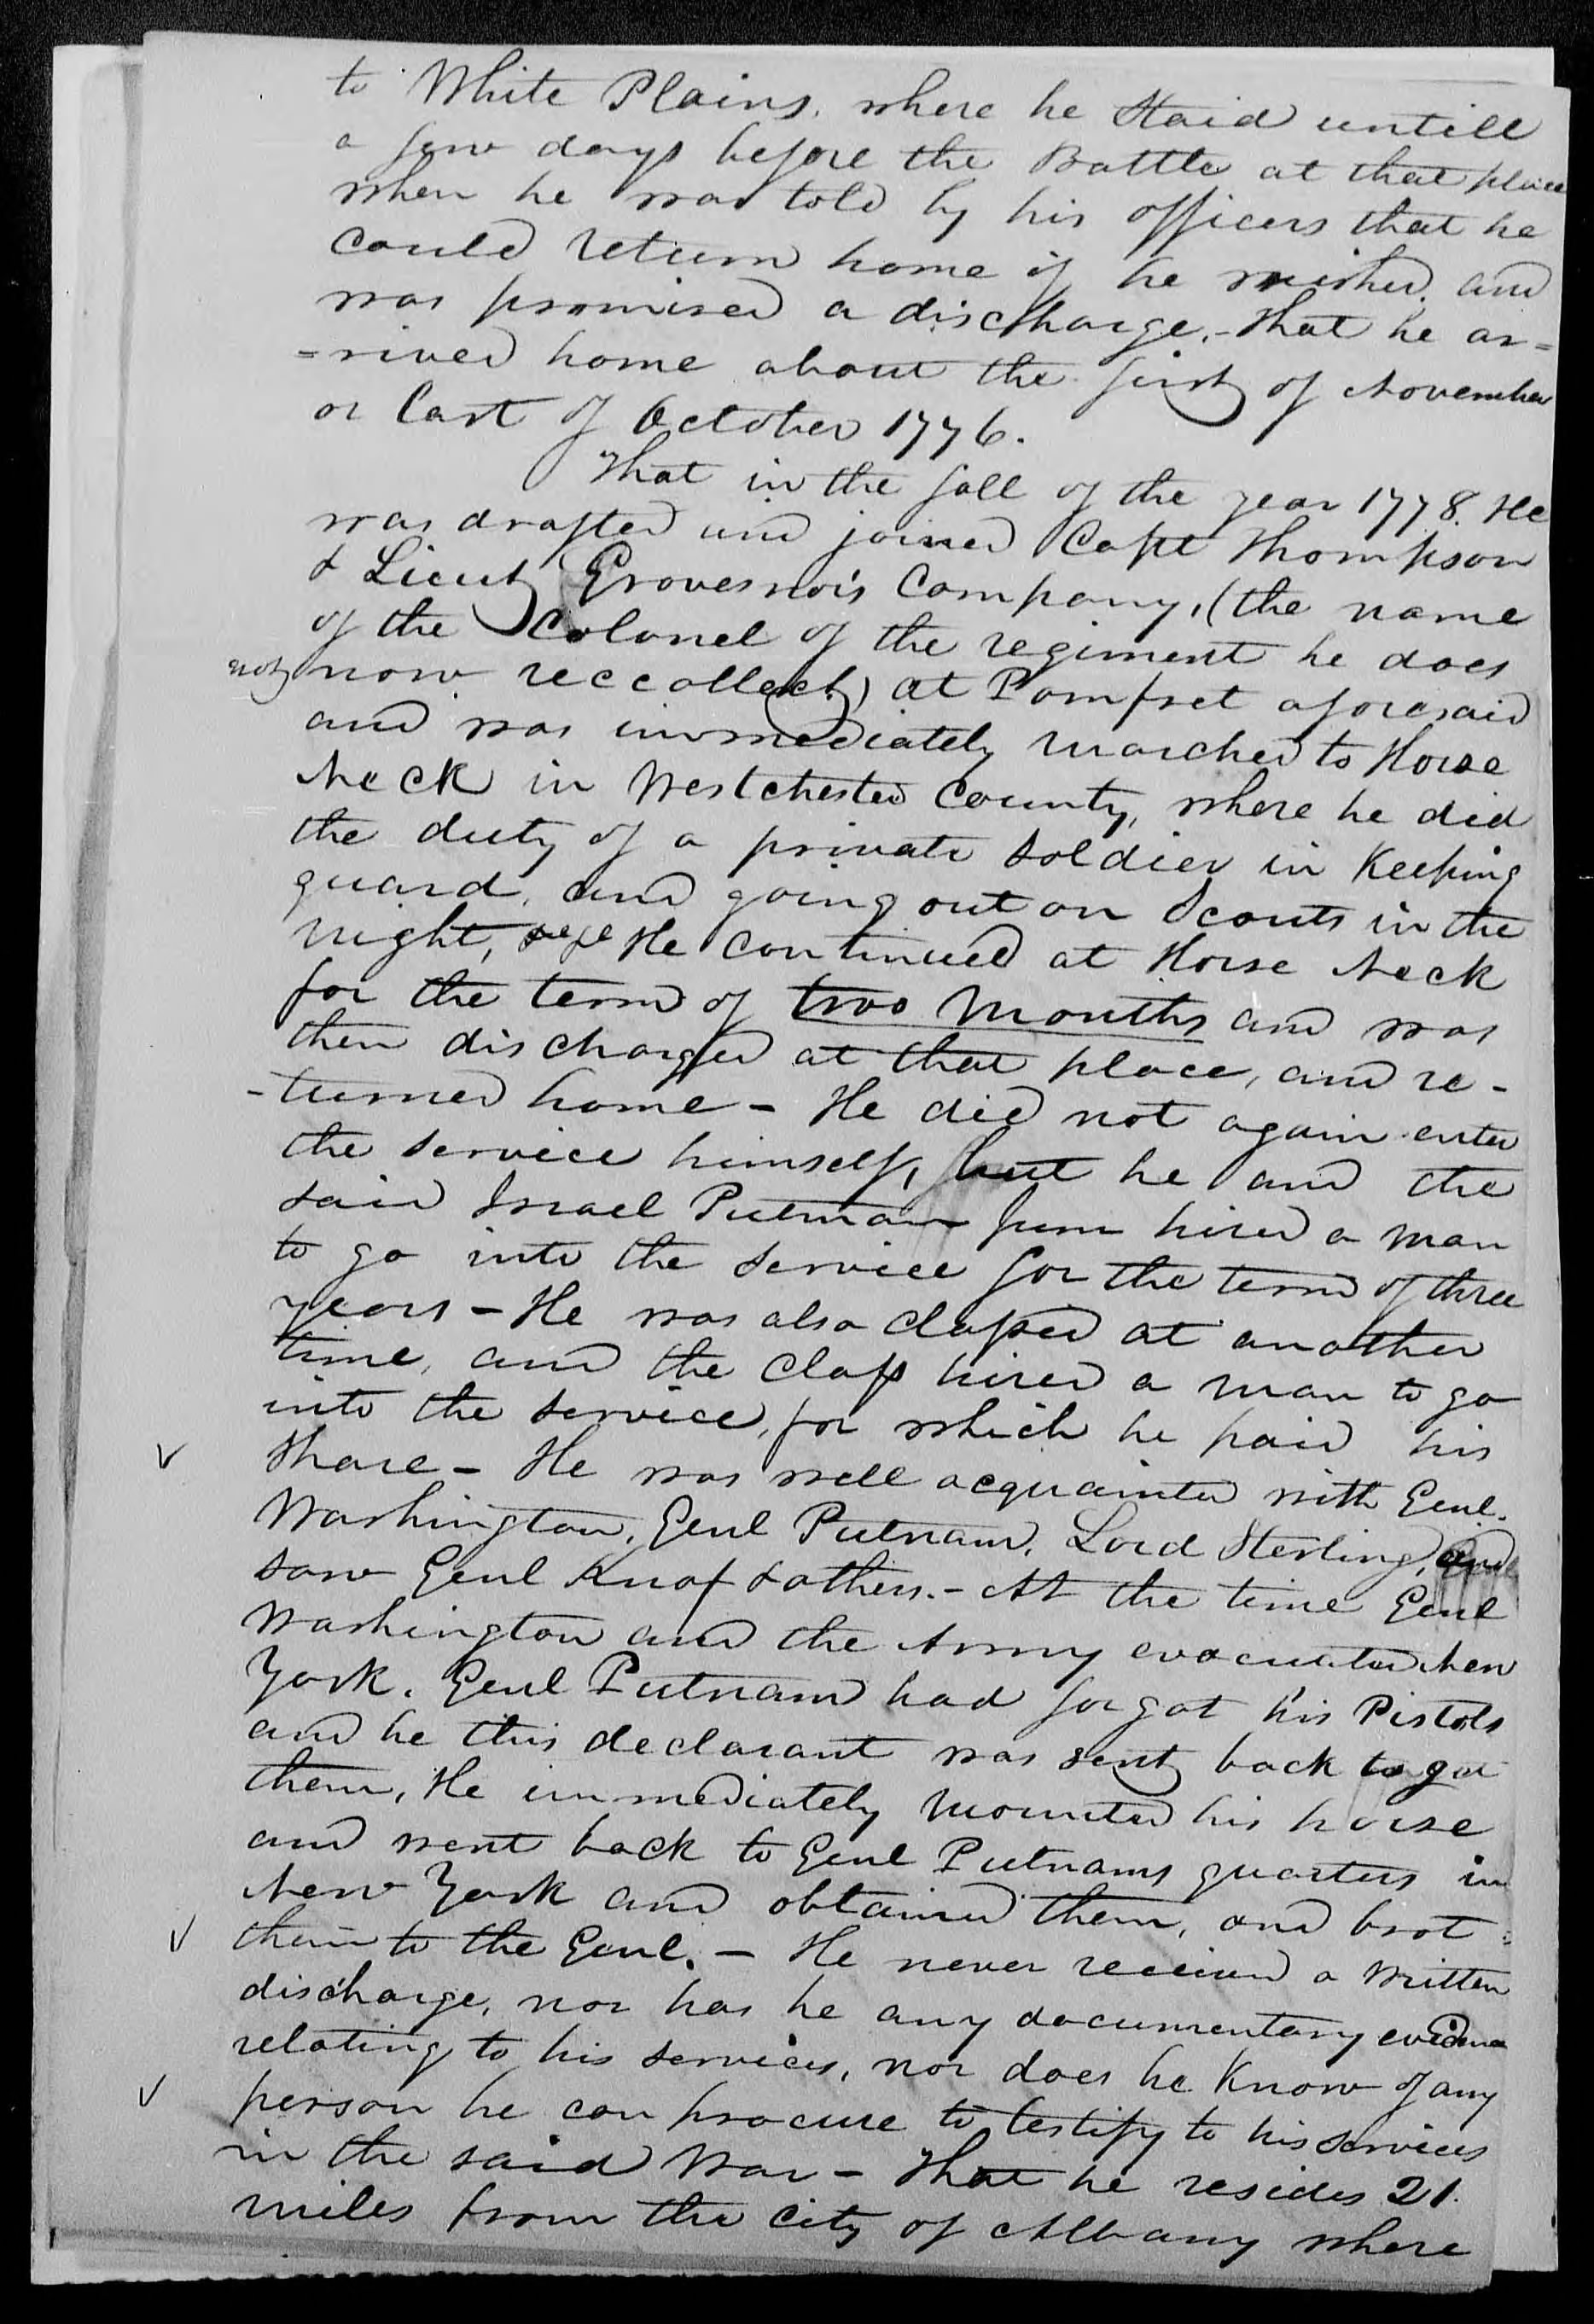 to White Plains, where he Staid untill
a few days before the Battle at that place
when he was told by his officers that he
could return home if he wished, and
was promised a discharge,- that he ar=
=rived home about the first of November
or last of October 1776.
That in the fall of the year 1778. He
was drafted and joined Capt Thompson
& Lieut Grovesnor's Company, (the name
of the Colonel of the regiment he does
not now reccollect) at Pomfret aforesaid
and was immediately marched to Horse
Neck in Westchester County, where he did
the duty of a private soldier in Keeping
guard, and going out on Scouts in the
night, He continued at Horse Neck
for the term of two months and was
then discharged at that place, and re-
-turned home - He did not again enter
the service himself, but he and the
said Israel Putnam Junr hired a man
to go into the service for the term of three
years - He was also classed at another
time, and the class hired a man to go
into the service, for which he paid his
V share - He was well acquainted with Genl.
Washington, Genl Putnam, Lord Sterling, and
saw Genl Knox & others. - At the time Genl
Washington and the Army evacuated New
York. Genl Putnam had forgot his Pistols
and he this declarant was sent back to get
them, He immediately mounted his horse
and went back to Genl Putnams quarters in
New York and obtained them, and brot
V them to the Genl. - He never received a written
discharge, nor has he any documentary evidence
relating to his services, nor does he Know of any
V person he can procure to testify to his services
in the said War - That he resides 21.
miles from the City of Albany where